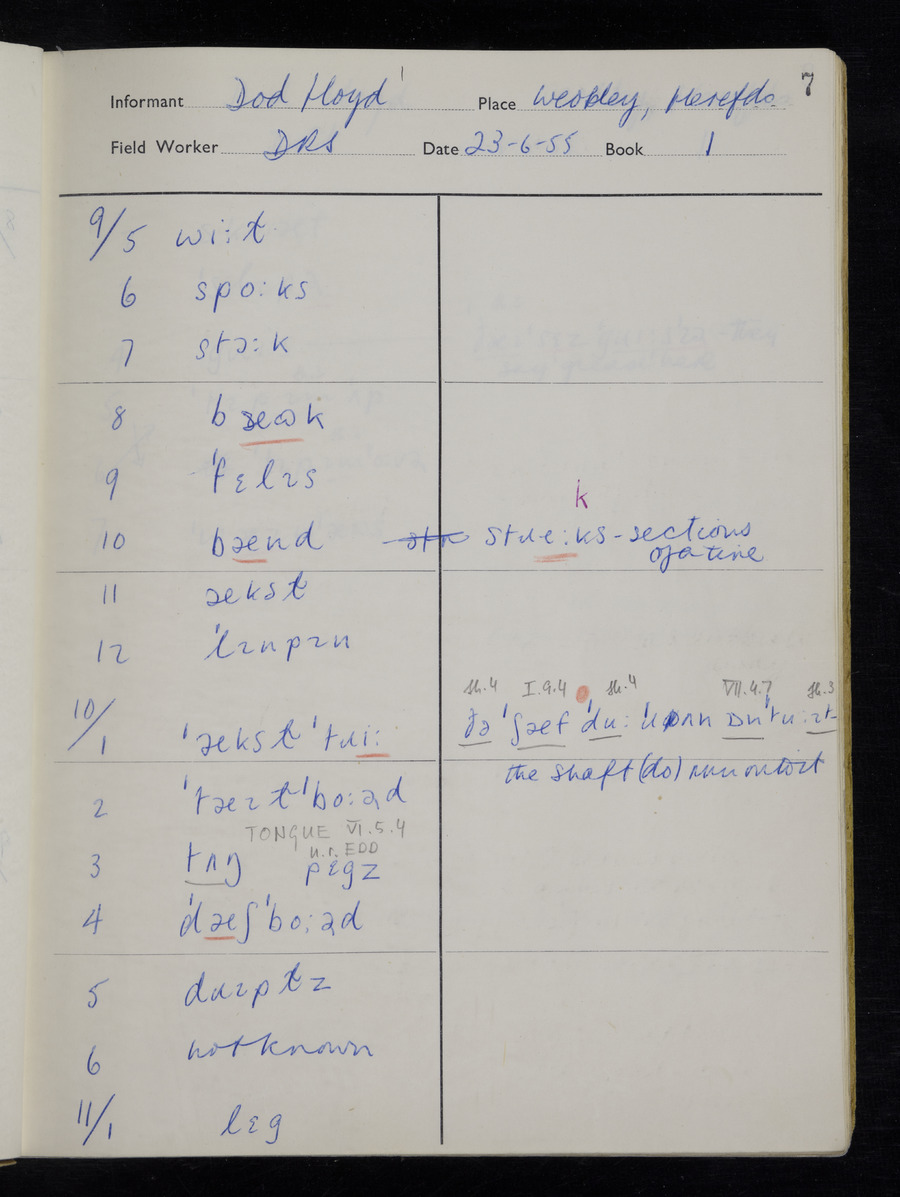 7
Informant Dod Lloyd Place Weobley, Herefds.
Field Worker DRS Date 23-6-55 Book 1
9/5 wiːɫ
6 spoːks
7 stɹəːk
8 bɹæɷk
9 ˈfɛlɪs
k
10 bænd stɹɛːks - sections
of a tire
11 ækst
12 ˈlɪnpɪn
sh.4 I.9.4 sh.4 VII.4.7 sh.3
10/1 ˈækst ˈtɹiː
the shaft (do) run on to it
2 ˈtæɪɫ ˈboːəd
TONGUE VI.5.4
n.r. EDD
3 tʌŋ pɛgz
4 ˈdæʃ ˈboːəd
5
6 not known
11/1 lɛg